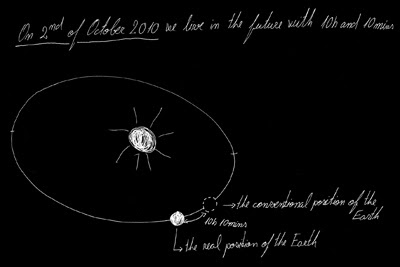 On 2nd of October 2010 we live in the future with 10h and 10mins
the conventional position of the
Earth
10h 10mins
the real position of the Earth